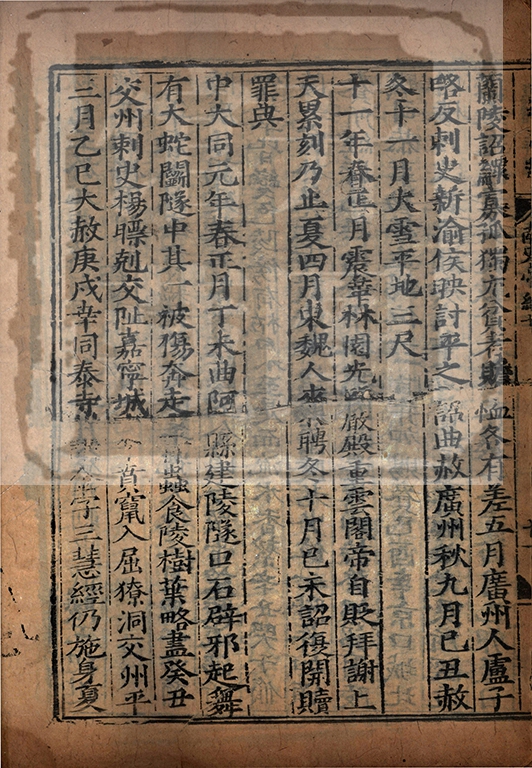 蘭陵詔鰥寡孤獨尤貧者贍恤各有差五月廣州人盧子
略反刺史新渝侯映討平之詔曲赦廣州秋九月己丑赦
冬十一月大雪平地三尺
十一年春正月震華林園光嚴殿重雲閣帝自貶拜謝上
天累刻乃止夏四月東魏人來聘冬十月己未詔復開贖
罪典
中大同元年春正月丁未曲阿縣建陵隧口石辟邪起舞
有大蛇鬭隧中其一被傷奔走青蟲食陵樹葉略盡癸丑
交州刺史楊瞟剋交阯嘉寧城李賁竄入屈獠洞交州平
三月乙巳大赦庚戌幸同泰寺講金字三慧經仍施身夏